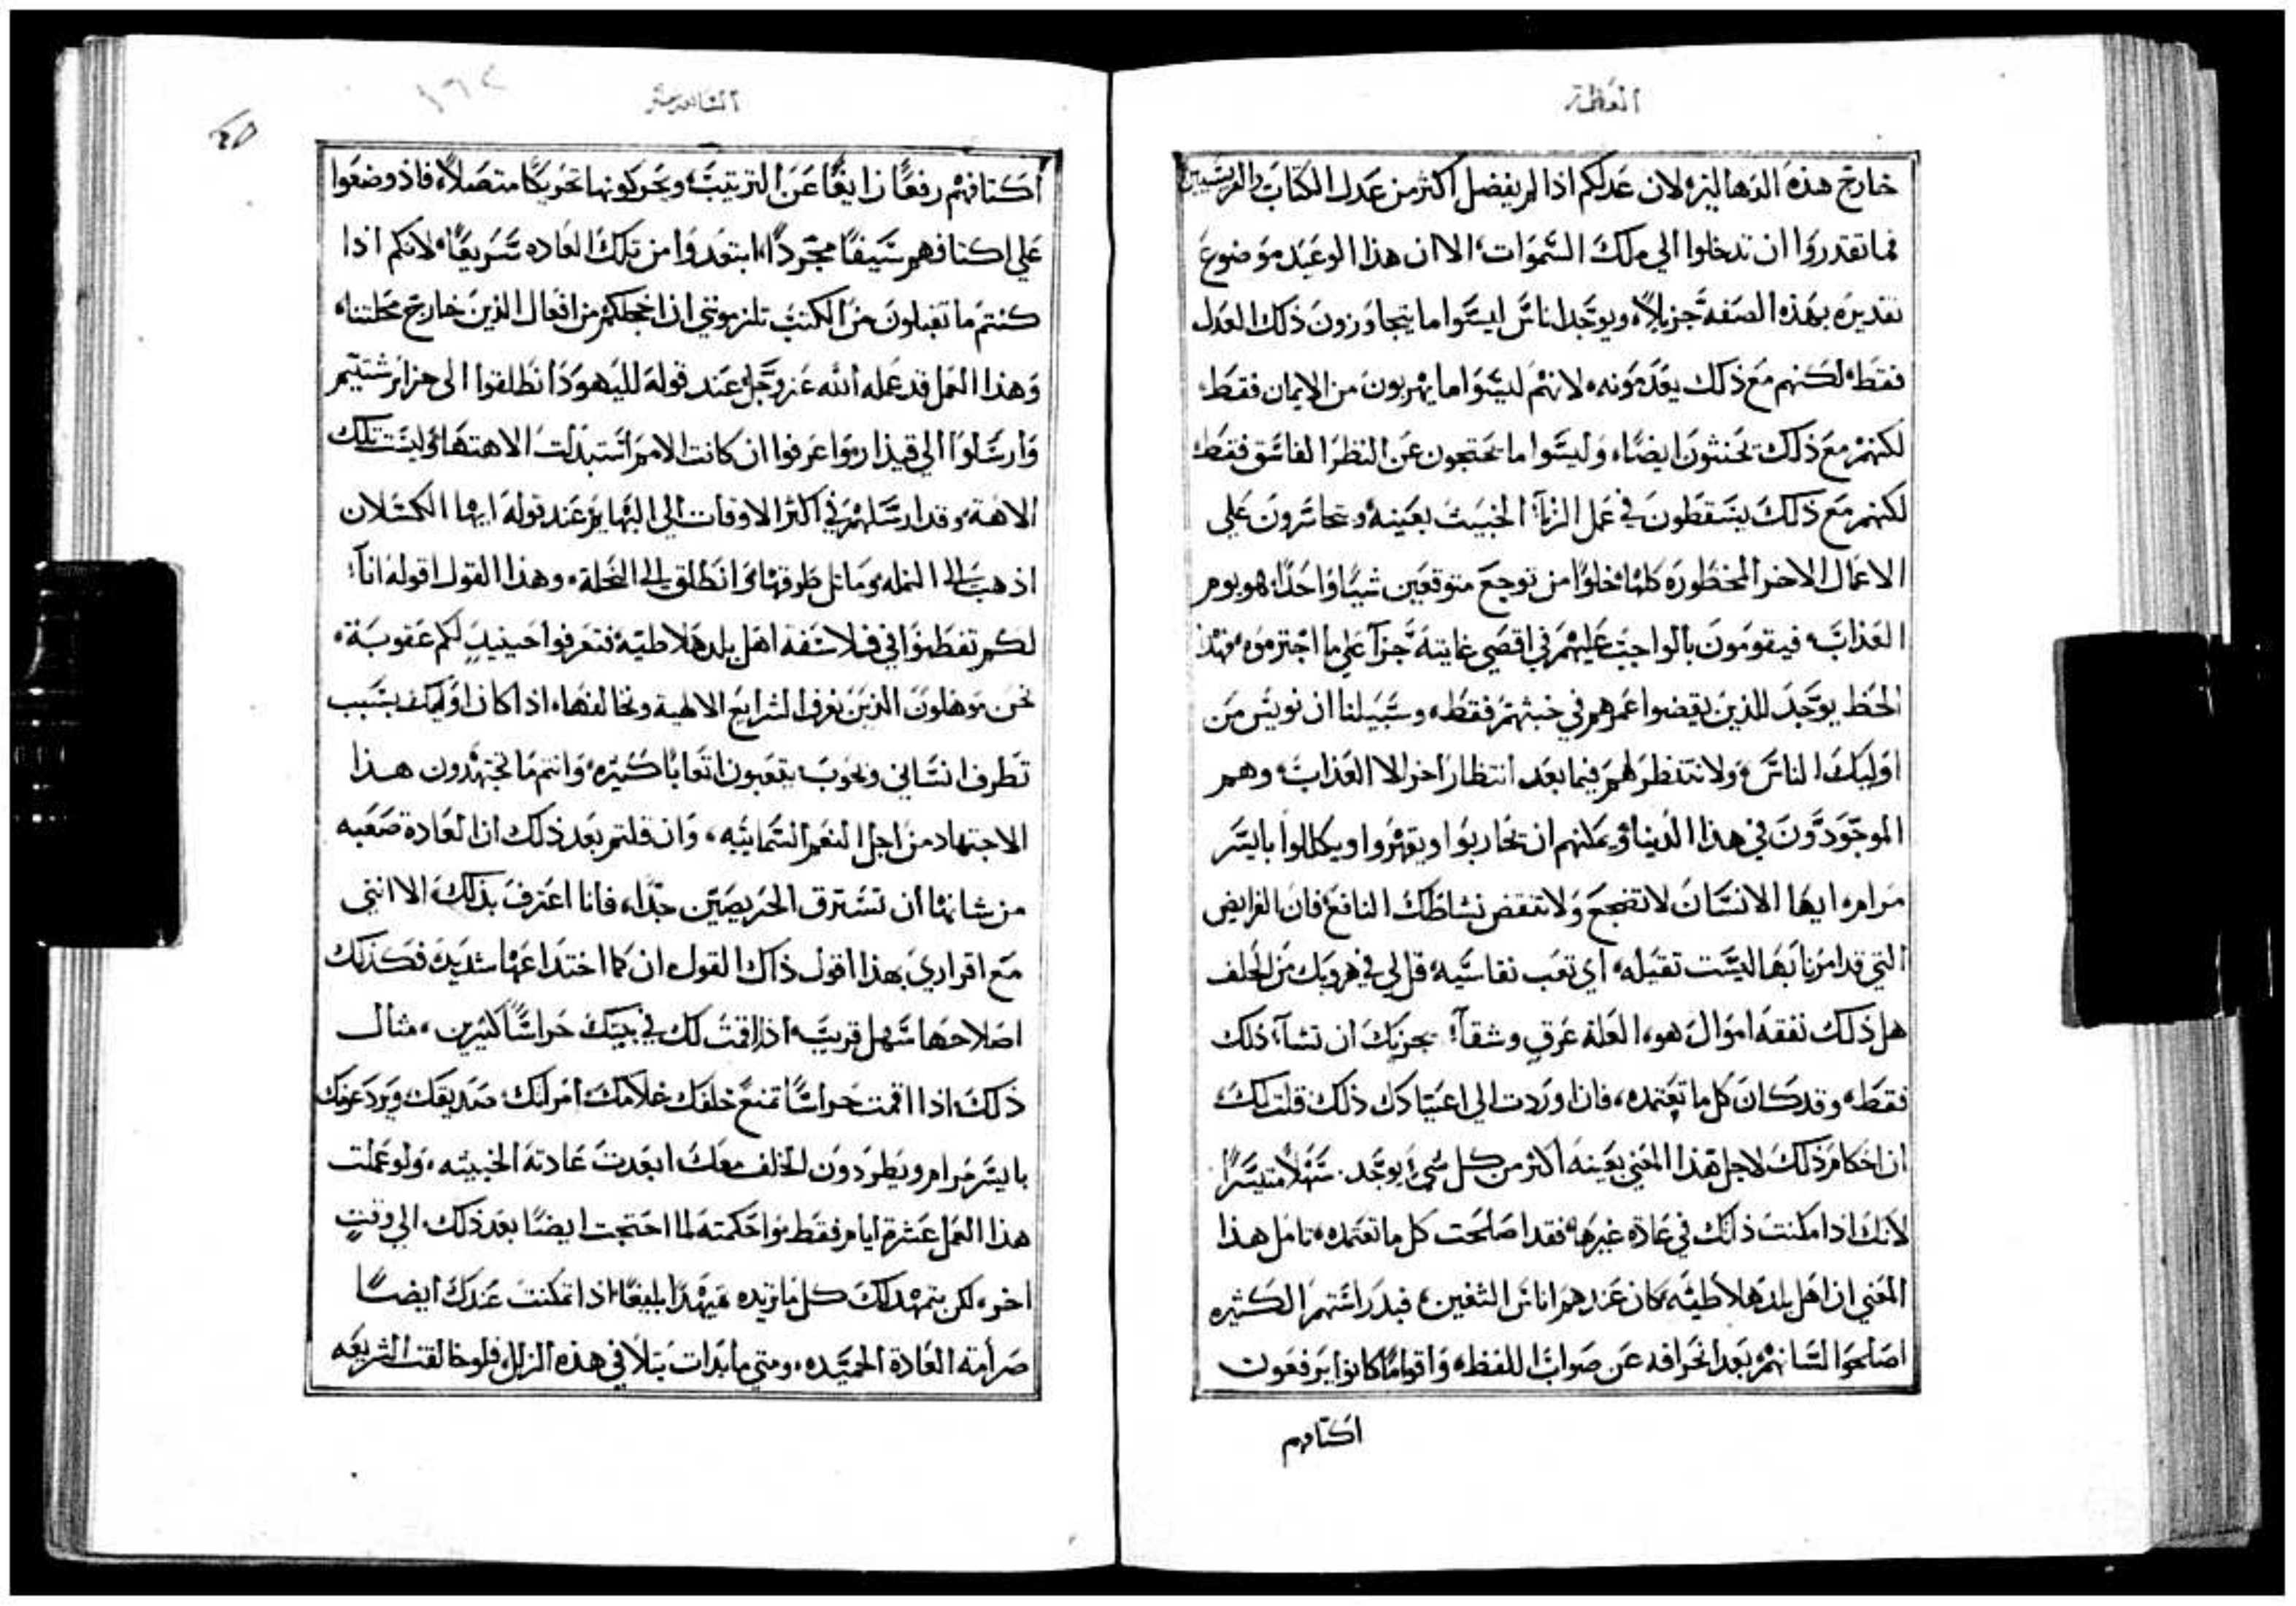 العظة
خارج هذه الدهاليزه لان عدلكم اذا لم يفضل اكثر من عدل الكتاب والفريسيين
فما تقدروا ان تدخلوا الي ملك السموات، الا ان هذا الوعيد موضوع
تقديره بهذه الصفة جزيلاً، ويوجد اناس ليسوا ما يتجاوزون ذلك العدل
فقط، لكنهم مع ذلك يعدمونه، لانهم ليسوا ما يهربون من الايمان فقط،
لكنهم مع ذلك يحنثون ايضاً، وليسوا ما يحتجون عن النظر الفاسق فقط
لكنهم مع ذلك يسقطون في عمل الزنا الخبيث بعينه، وتجاسرون علي
الاعمال الاخر المحظوره كلها خلوا من توجع متوقعين شياً واحداً، هو يوم
العذاب، فيقومون بالواجب عليهم في اقصي غايته جزآ علي ما اجترموه، فهذا
الحظ يوجد للذين يقضوا عمرهم في خبثهم فقط، وسبيلنا ان نويس من
اوليك الناس ولا ننتظر لهم فيما بعد انتظاراً اخر الا العذاب، وهم
الموجودون في هذا الدنيا ويمكنهم ان يحاربوا ويقهروا ويكللوا بايسر
مرام، ايها الانسان لا تضجع ولا تنقض نشاطك النافع، فان الفرايض
التي قد امرنا بها ليست ثقيله، اي تعب نقاسيه، قل لي في هروبك من الحلف
هل ذلك نفقة اموال هو، العلة عرق وشقآ، يجزيك ان تشآ ذلك
فقط، وقد كان كل ما تعتمده، فان اوردت الي اعتيادك ذلك قلت لك
ان احكام ذلك لاجل هذا المعني بعينه اكثر من كل شي يوجد سهلاً متيسراً
لانك اذا مكنت ذلك في عادة غيرها فقد اصلحت كل ما تعتمده، تامل هذا
المعني ان اهل بلد هلاطيه، كان عندهم اناس الثغين، فبدراستهم الكثيره
اصلحوا لسانهم بعد انحرافه عن صواب اللفظ، واقواماً كانوا يرفعون
اكتافهم
السابعه عشر
١٦٢
اكتافهم رفعاً زايغاً عن الترتيب، ويحركونها تحريكاً متصلاً، فاذ وضعوا
علي اكتافهم سيفاً مجرداً، ابتعدوا من تلك العاده سريعاً، لانكم اذا
كنتم ما تقبلون من الكتب تلزمونني ان اخجلكم من افعال الذين خارج محلتنا،
وهذا العمل قد عمله الله عز وجل عند قوله لليهود انطلقوا الى جزاير شتيم
وارسلوا الي قيذار واعرفوا ان كانت الامم استبدلت الاهتها وليست تلك
الاهة، وقد ارسلهم في اكثر الاوقات الي البهايم عند قوله ايها الكسلان
اذهب الى النمله وماثل طرقها وانطلق الى النحلة، وهذا القول اقوله انا
لكم تفطنوا في فلاسفة اهل بلد هلاطيه، فتعرفوا حينيذٍ لكم عقوبة،
نحن موهلون الذين نعرف الشرايع الالهية ونخالفها، اذا كان اوليك بسبب
تطرف انساني وبحوب يتعبون اتعاباً كثيره، وانتم ما تجتهدون هذا
الاجتهاد من اجل النعم السمايه، وان قلتم بعد ذلك ان العادة صعبه
من شانها ان تسترق الحريصين جداً، فانا اعترف بذلك الا انني
مع اقراري بهذا اقول ذاك القول ان كما اختداعها شديد، فكذلك
اصلاحها سهل قريب، اذا اقمت لك في بيتك حراساً كثيرين، مثال
ذلك، اذا اقمت حراساً تمنع خلفك غلامك امراتك صديقك ويردعونك
بايسر مرام ويطردون الحلف معك ابعدت عادتة الخبيثه، ولو عملت
هذا العمل عشرة ايام فقط واحكمته لما احتجت ايضاً بعد ذلك الي وقتٍ
اخر، لكن يتمهد لك كل ما تريده تمهيداً بليغاً، اذا تمكنت عندك ايضاً
صرامة العادة الحميده، ومتي ما بدات بتلافي هذه الزلل، فلو خالفت الشريعه